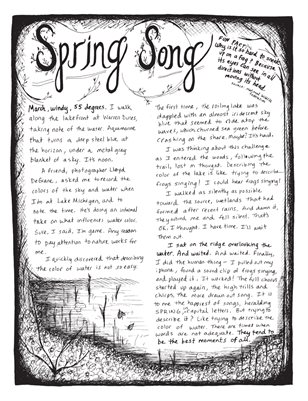 Spring Song
FROG FACT:
Why is it so hard to sneak
up on a frog? Because
its eyes can see in all
directions without
moving its head.
March, windy, 55 degrees. I walk
along the lakefront at Warren Dunes,
taking note of the water. Aquamarine
that turns a deep steel blue at
the horizon, under a metal grey
blanket of a sky. It's noon.
A friend, photographer Lloyd
DeGrane, asked me to record the
colors of the sky and water when
I'm at Lake Michigan, and to
note the time. He's doing an informal
take on what influences water color.
Sure, I said, I'm game. Any reason
to pay attention to nature works for
me.
I quickly discovered that describing
the color of water is not so easy.
The first time, the roiling lake was
dappled with an almost iridescent sky
blue that seemed to ride atop the
waves, which churned sea green before
crashing on the shore. Maybe? It's hard.
I was thinking about this challenge
as I entered the woods, following the
trail, lost in thought. Describing the
color of the lake is like trying to describe
frogs singing! I could hear frogs singing!
I walked as silently as possible
toward the source, wetlands that had
formed after recent rains. And damn it,
they heard me and fell silent. That's
OK, I thought. I have time. I'll wait
them out.
I sat on the ridge overlooking the
water. And waited. And waited. Finally,
I did the human thing — I pulled out my
phone, found a sound clip of frogs singing,
and played it. It worked! The full chorus
started up again, the high trills and
chirps, the more drawn out song. It is
to me the happiest of songs, heralding
SPRING (capital letters. But trying to
describe it? Like trying to describe the
color of water. There are times when
words are not adequate. They tend to
be the best moments of all.